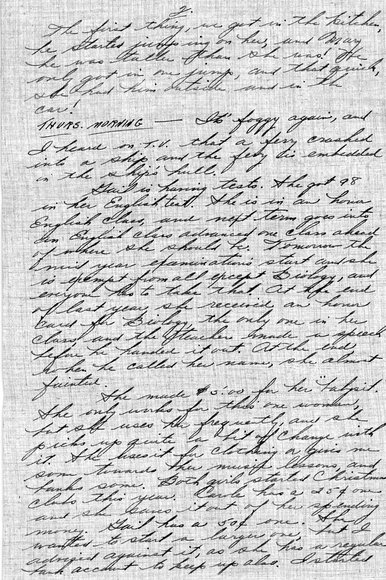 2.
The first thing, we got in the kitchen,
he started jumping on her, and Mary
he was taller than she was! He
only got in one jump, and that quick,
she had him outside and in the
car!
THURS. MORNING — It's foggy again, and
I heard on T.V. that a ferry crashed
into a ship and the fery is embedded
in the ship's hull.
Gail is having tests. She got 98
in her English test. She is in an honor
English class, and next term goes into
an English class advanced one class ahead
of where she should be. Tomorrow the
mid year examinations start and she
is exempt from all except Biology, and
everyone has to take that. At the end
of last year, she received an honor
card for Biology, the only one in her
class and the teacher made a speech
before he handed it out. At the end
when he called her name, she almost
fainted.
She made $5.00 for her "babysit.
She only works for this one woman,
but she uses her frequently, and she
picks up quite a bit of change with
it. She uses it for clothing or gives me
some towards her music lessons, and
banks some. Both girls started Christmas
clubs this year. Carole has a 25¢ one
and she saves it out of her spending
money. Gail has a 50¢ one. She
wanted to start a larger one, but I
advised against it, as she has a regular
bank account to keep up also. I started